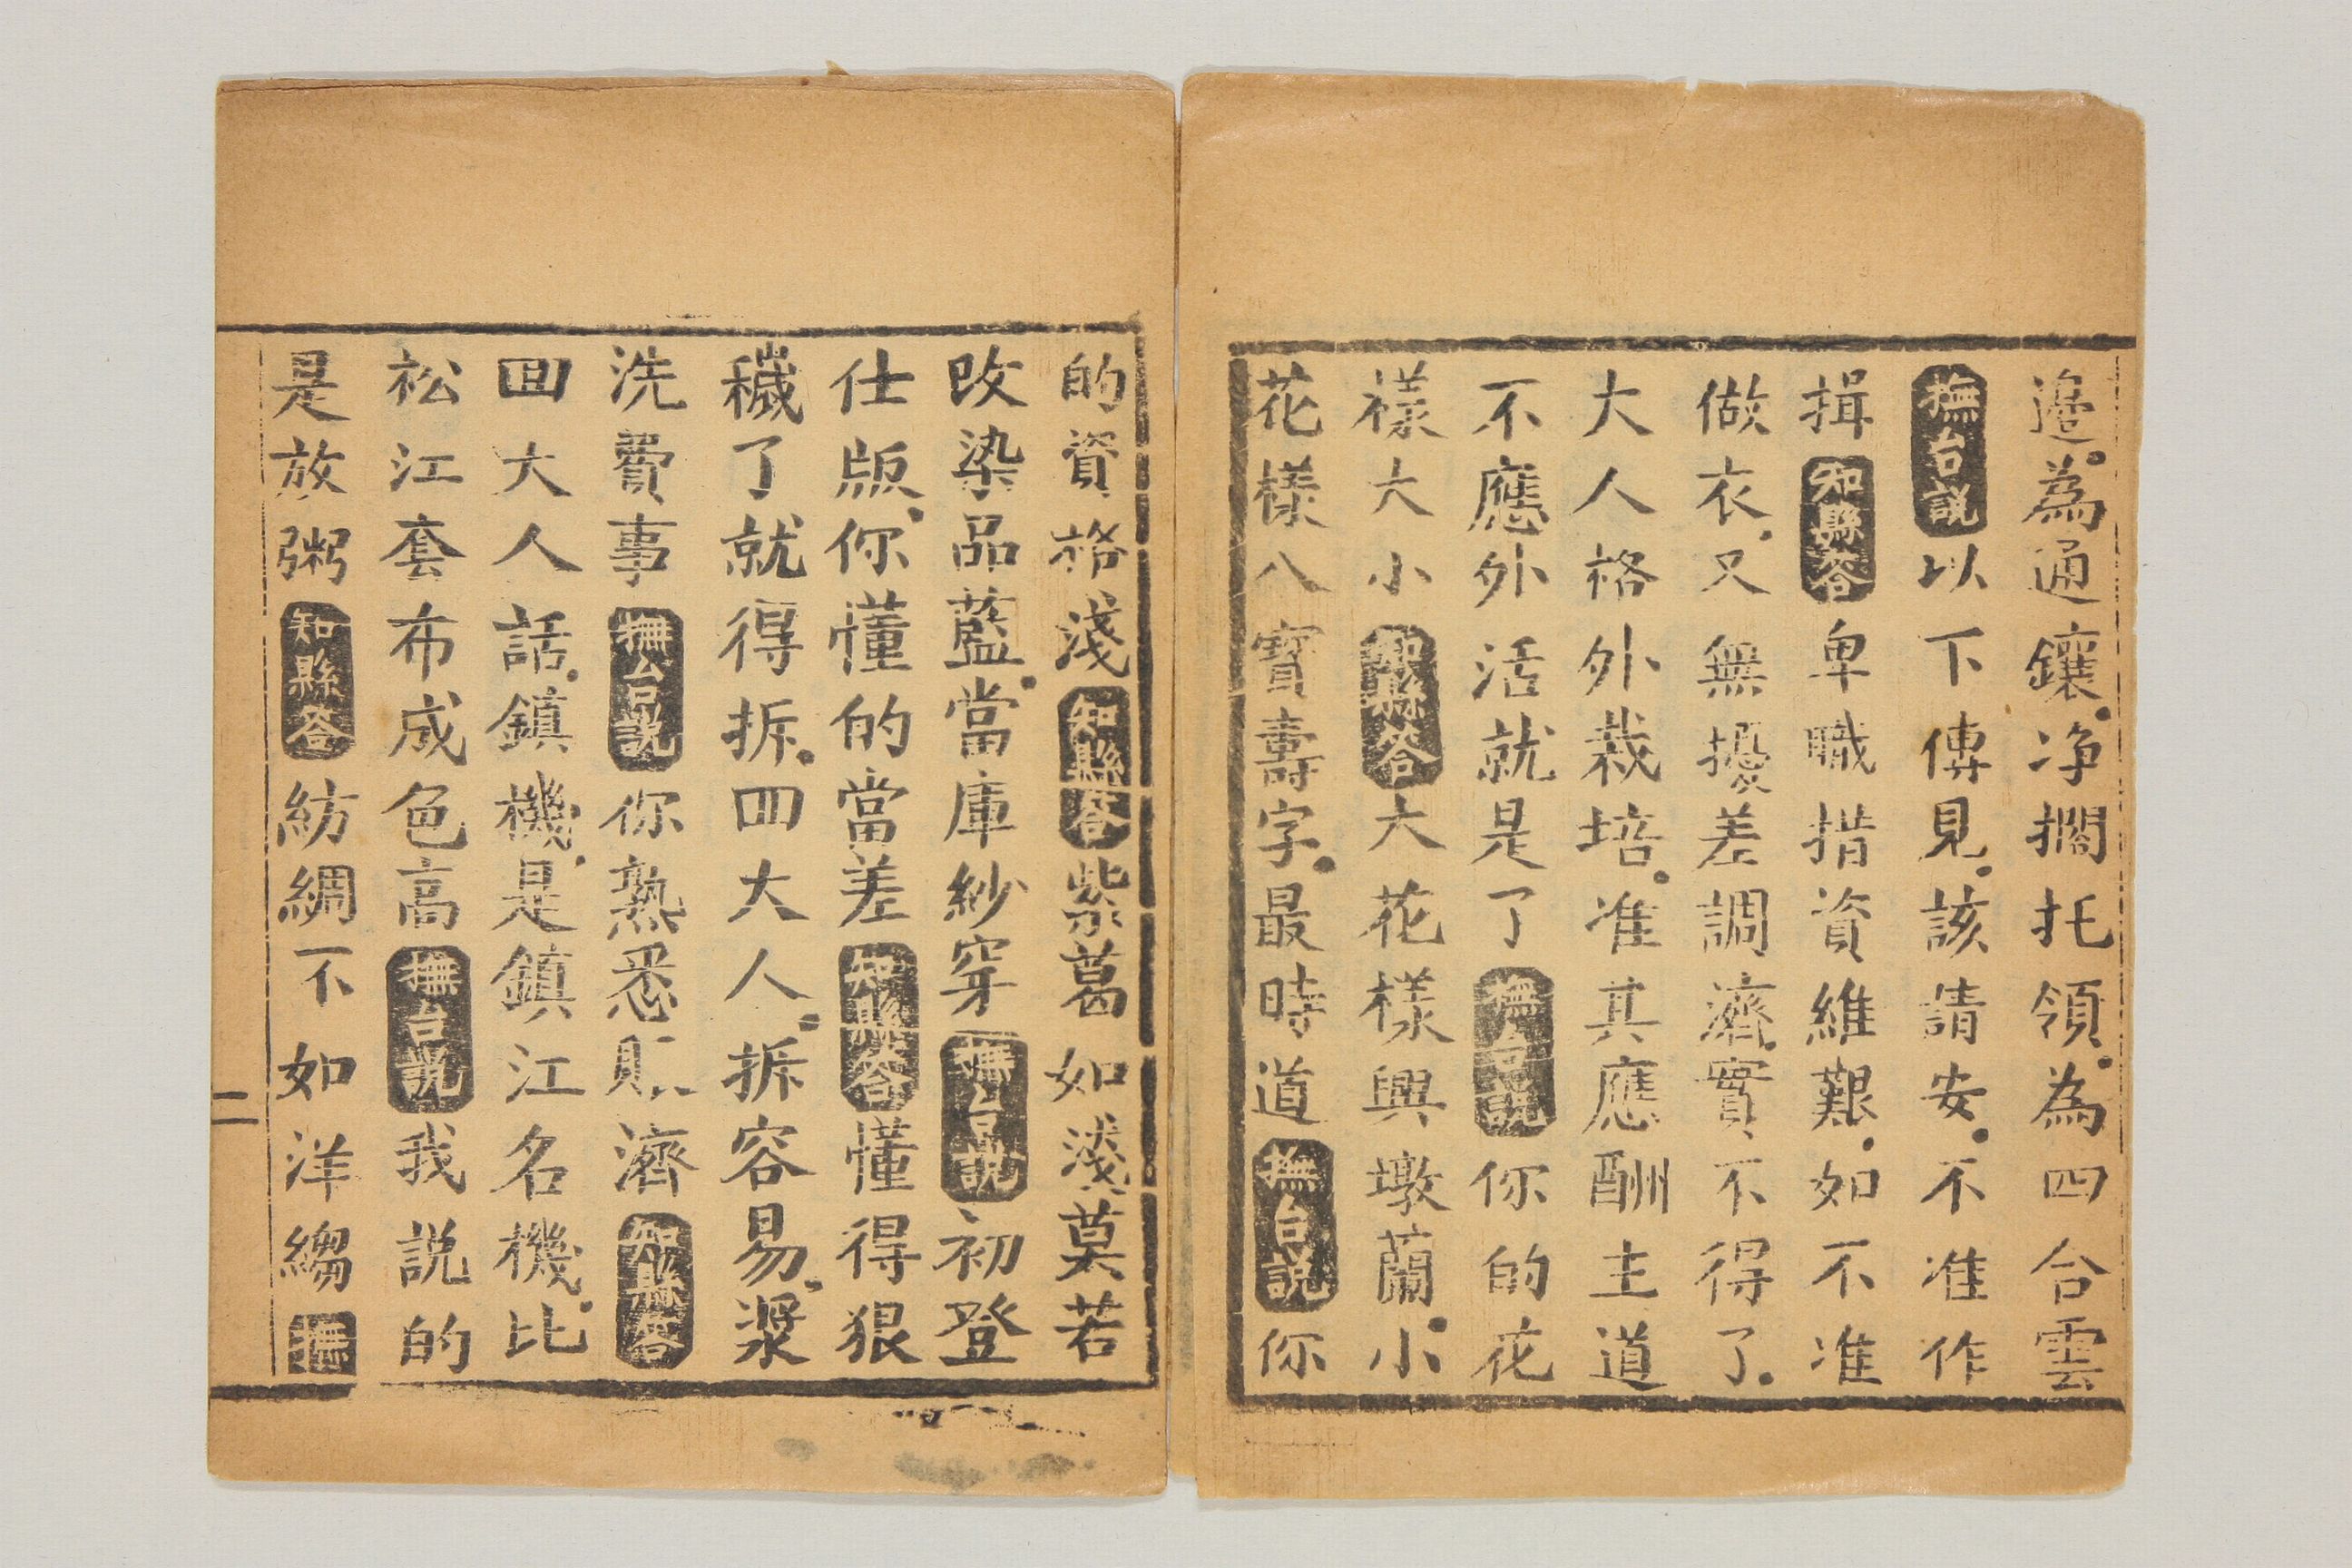 邉為通鑲净擱托領為四合雲
撫台説以下傳見該請安不准作
揖知縣答卑職措資維艱如不准
做衣又無擾差調濟實不得了
大人格外栽培准其應酬主道
不應外活就是了撫台説你的花
樣大小知縣答大花樣興墩蘭小
花樣八寳壽字最時道撫台説你
的資格淺知縣答紫葛如淺莫若
改染品藍當庫紗穿撫台説初登
仕版你懂的當差知縣答懂得狠
穢了就得拆回大人拆容易漿
洗費事撫台説你熟悉賑濟知縣答
回大人話鎮機是鎮江名機比
松江套布成色高撫台説我説的
是放粥知縣答紡綢不如洋縐撫
二